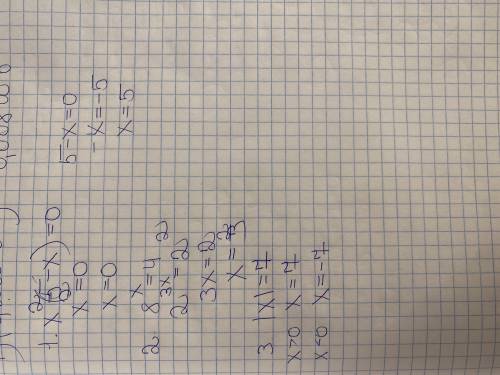 1. x(5-x)=0
x=0 5-x=0
x=0 -x=-5
x=5
2 8^x=4
2^3x=2^2
3x=2
x=2/3
3 |x|=7
x>0 x=7
x<0 x=-7